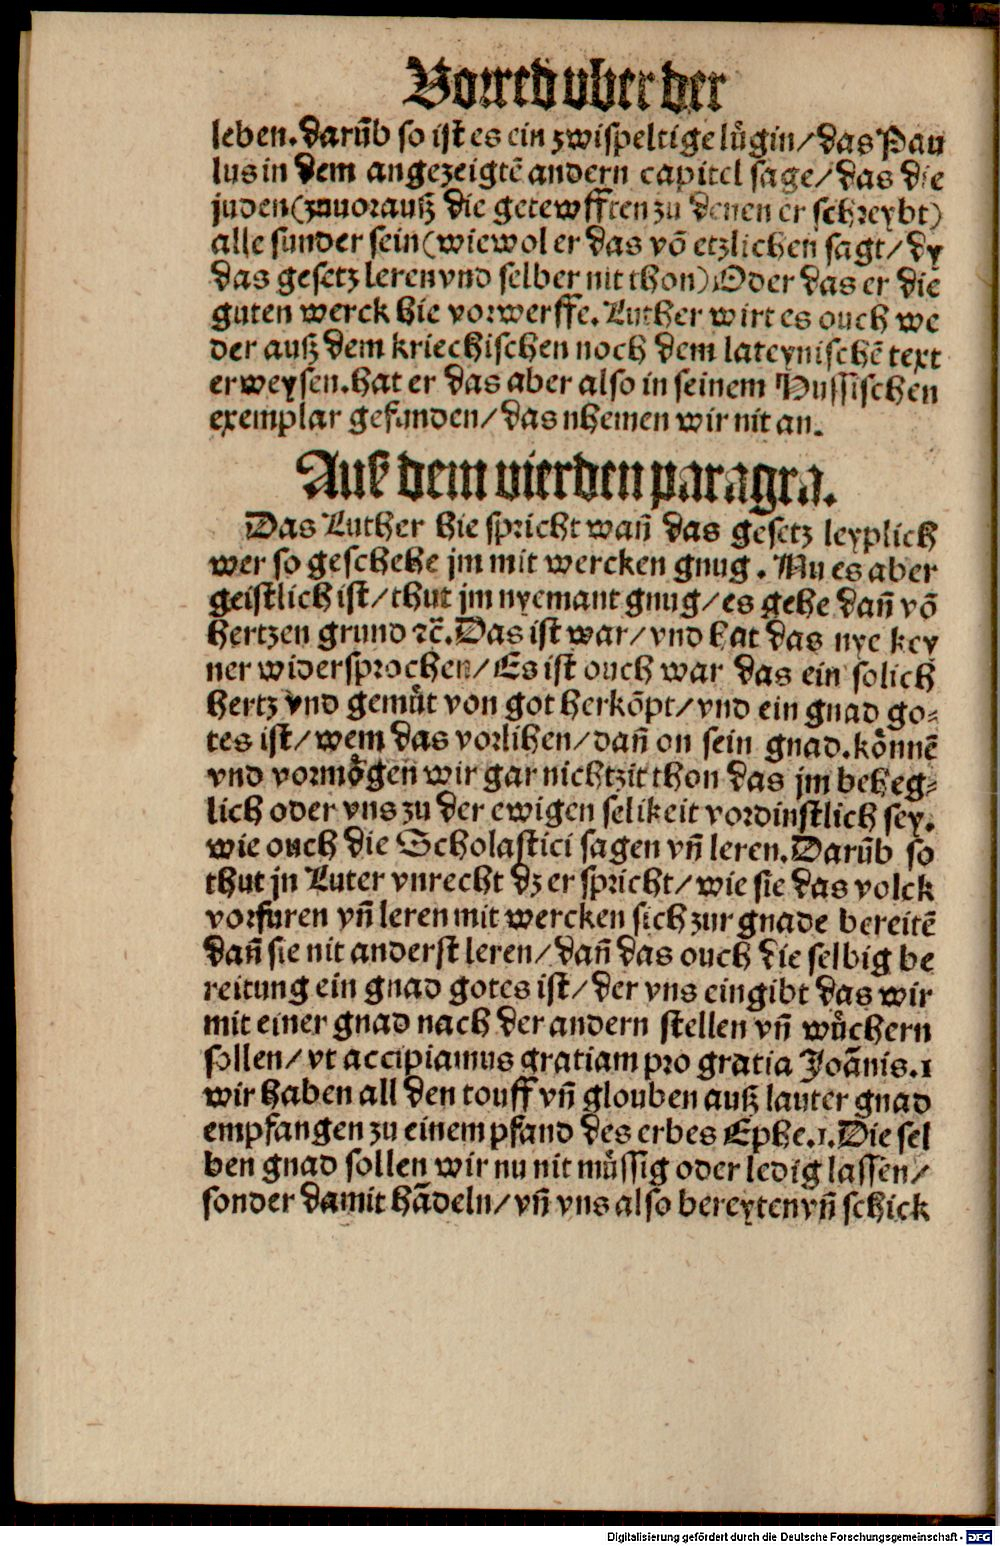 Vorred vber der
leben. darũb so ist es ein zwispeltige lůgin/ das Pau
lus in dem angezeigtẽ andern capitel sage/ das die
juden (zuuorauß die getewfften zu denen er schreybt)
alle sunder sein (wiewol er das võ etzlichen sagt/ dy
das gesetz leren vnd selber nit thon) Oder das er die
guten werck hie vorwerffe. Luther wirt es ouch we
der auß dem kriechischen noch dem lateynischẽ text
erweysen. hat er das aber also in seinem Hussischen
exemplar gefunden/ das nhemen wir nit an.
Auß dem vierden paragra.
Das Luther hie spricht wañ das gesetz leyplich
wer so geschehe jm mit wercken gnug. Nu es aber
geistlich ist/ thut jm nyemant gnug/ es gehe dañ võ
hertzen grund ꝛc̃. Das ist war/ vnd hat das nye key
ner widersprochen/ Es ist ouch war das ein solich
hertz vnd gemůt von got herkõpt/ vnd ein gnad go⸗
tes ist/ wem das vorlihen/ dañ on sein gnad. kőnnẽ
vnd vormőgen wir gar nichtzit thon das jm beheg⸗
lich oder vns zu der ewigen selikeit vordinstlich sey.
wie ouch die Scholastici sagen vñ leren. Darũb so
thut jn Luter vnrecht dz er spricht/ wie sie das volck
vorfuren vñ leren mit wercken sich zur gnade bereitẽ
dañ sie nit anderst leren/ dañ das ouch die selbig be
reitung ein gnad gotes ist/ der vns eingibt das wir
mit einer gnad nach der andern stellen vñ wůchern
sollen/ vt accipiamus gratiam pro gratia Joãnis. 1
wir haben all den touff vñ glouben auß lauter gnad
empfangen zu einem pfand des erbes Ephe. 1. Die sel
ben gnad sollen wir nu nit můssig oder ledig lassen/
sonder damit hãdeln/ vñ vns also bereyten vñ schick
Digitalisierung gefördert durch die Deutsche Forschungsgemeinschaft - DFG